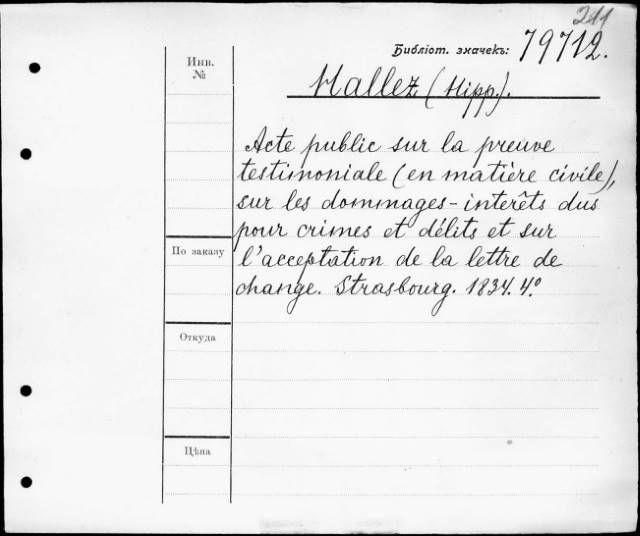 211
Библіот. значекъ: 79712.
Mallez (Hipp.).
Инв.
№
Acte public sur la preuve
testimoniale (en matière civile),
sur les dommages-interêts dus
pour crimes et délits et sur
l'acceptation de la lettre de
change. Strasbourg. 1834. 4º
По заказу
Откуда
Цѣна